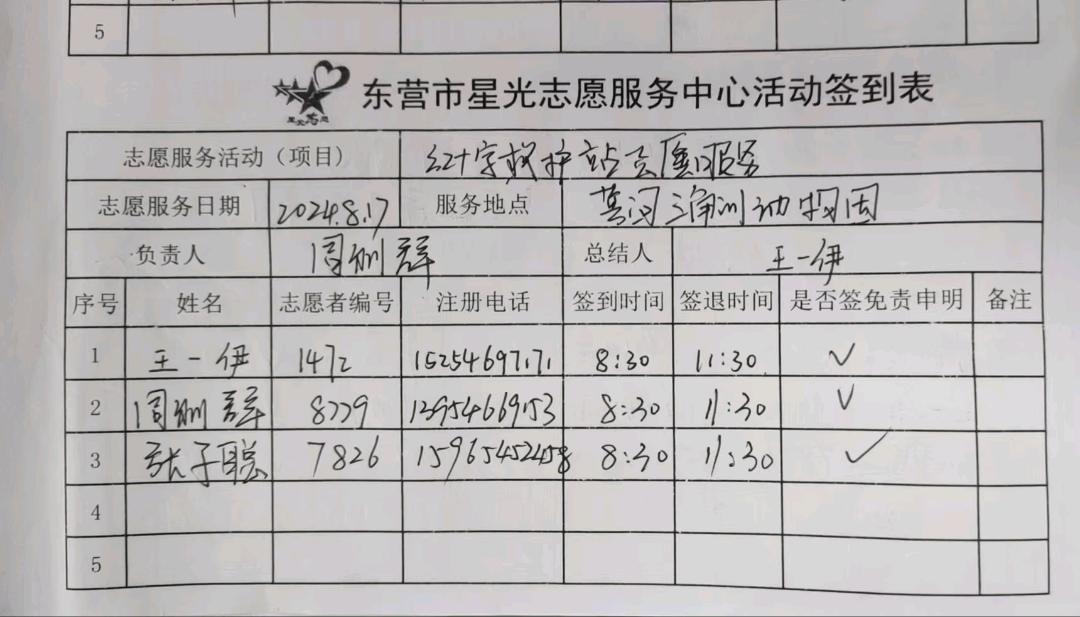 5
东营市星光志愿服务中心活动签到表
志愿服务活动（项目） 红十字救护站志愿服务
志愿服务日期 2024.8.17 服务地点 黄河三角洲动物园
负责人 总结人 王一伊
序号 姓名 志愿者编号 注册电话 签到时间 签退时间 是否签免责申明 备注
1 王一伊 1472 15254697171 8:30 11:30 ✓
2 8229 13954669153 8:30 11:30 ✓
3 张子聪 7826 15965452458 8:30 11:30 ✓
4
5